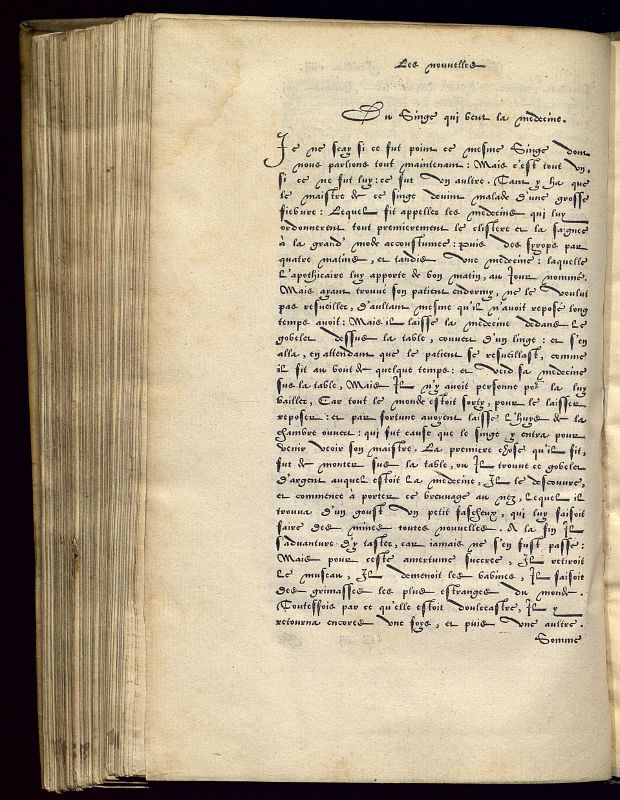 Les nouuelles
Du Singe qui beut la medecine.
Je ne scay si ce fut point ce mesme Singe dont
nous parlions tout maintenant: Mais c'est tout vn,
si ce ne fut luy: ce fut vn aultre. Tant y ha que
le maistre de ce singe deuint malade d'vne grosse
fieбure: Lequel fit appeller les medecins qui luy
ordonnerent tout premierement le clistere et la saignee
à la grand' mode accoustumee: puis des syrops par
quatre matins, et tandis vne medecine: laquelle
l'apothicaire luy apporte de bon matin, au Jour nommé.
Mais ayant trouué son patient endormy, ne le voulut
pas resueiller, d'aultant mesme qu'il n'auoit reposé long
temps auoit: Mais il laisse la medecine dedans le
gobelet dessus la table, couuert d'un linge: et s'en
alla, en attendant que le patient se resueillast, comme
il fit au bout de quelque temps: et veid sa medecine
sus la table, Mais Il n'y auoit personne por la luy
bailler, Car tout le monde estoit sorty, pour le laisser
reposer: et par fortune auoyent laissé l'huys de la
chambre ouuert: qui fut cause que le singe y entra pour
venir veoir son maistre. La premiere chose qu'il fit,
fut de monter sus la table, ou Il trouue ce gobelet
d'argent auquel estoit la medecine, Il le descouure,
et commence à porter ce breuuage au nez, lequel il
trouua d'un goust vn petit fascheux, qui luy faisoit
faire des mines toutes nouuelles. A la fin Il
s'aduanture d'y taster, car iamais ne s'en fust passé:
Mais pour ceste amertume sucree, Il retiroit
le museau, Il demenoit les babines, Il faisoit
des grimasses les plus estranges du monde.
Toutesfois par ce qu'elle estoit doulcastre, Il y
retourna encores vne foys, et puis vne aultre.
Somme